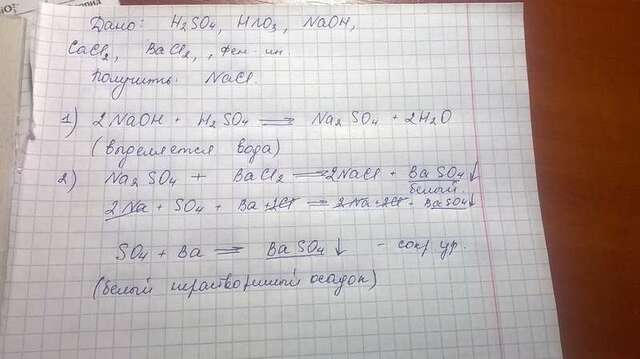 Дано: H₂SO₄, HNO₃, NaOH,
CaCl₂, BaCl₂, , фен-ин.
Получить: NaCl.
1) 2NaOH + H₂SO₄ = Na₂SO₄ + 2H₂O
(выделяется вода)
2) Na₂SO₄ + BaCl₂ = 2NaCl + BaSO₄↓
белый
2Na + SO₄ + Ba + 2Cl = 2Na + 2Cl + BaSO₄↓
SO₄ + Ba = BaSO₄↓ - сокр. ур.
(белый нерастворимый осадок)